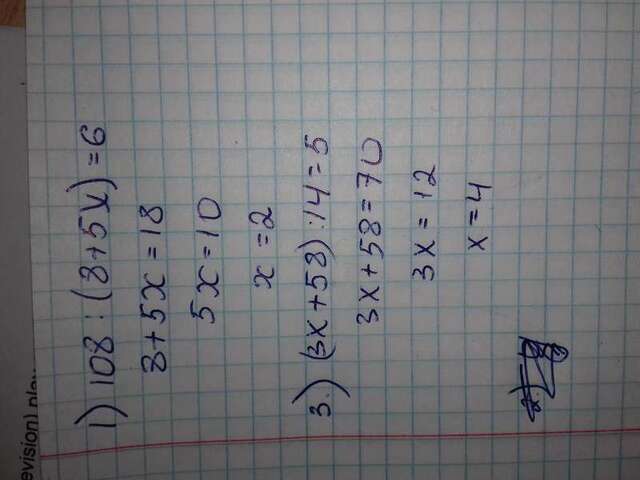 1) 108 : (8+5x) = 6
8+5x = 18
5x = 10
x = 2
3.) (3x+58) : 14 = 5
3x+58 = 70
3x = 12
x = 4
evision) play